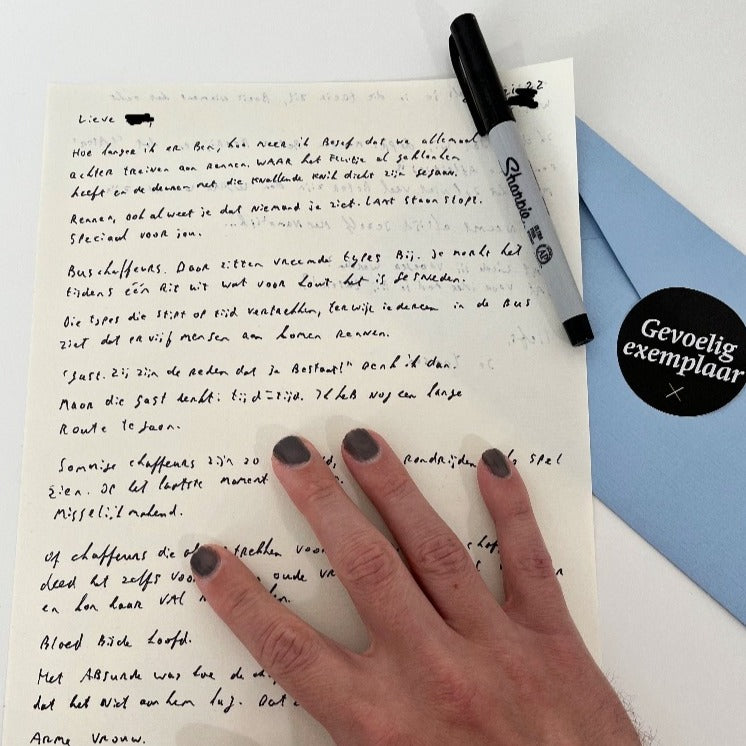 Lieve
Hoe langer ik er Ben, hoe meer ik Besef dat we allemaal
achter treinen aan rennen. WAAR het Fluitje al geklonken
heeft en de deuren met die knallende knik dicht zijn gegaan.
Rennen, ook al weet je dat niemand je ziet. LAAT staan stopt.
Speciaal voor jou.
Buschaffeurs. Daar zitten vreemde types Bij. Je merkt het
tijdens één Rit uit wat voor hout het is gesneden.
Die types die stipt op tijd vertrekken, terwijl iedereen in de Bus
ziet dat er vijf mensen aan komen Rennen.
"Gast. Zij zijn de reden dat je Bestaat!" Denk ik dan.
Maar die gast denkt: tijd = tijd. Ik heB nog een lange
Route te gaan.
Sommige chaffeurs zijn zo Rondrijden spel
zien. Op het laatste moment
Misselijkmakend.
Of chaffeurs die optrekken voor
deed het zelfs voor oude
en kon haar VAL
Bloed Bijde hoofd.
Het ABsurde was hoe de
dat het Niet aan hem lag. Dat
Arme Vrouw.
Sharpie
Gevoelig
exemplaar